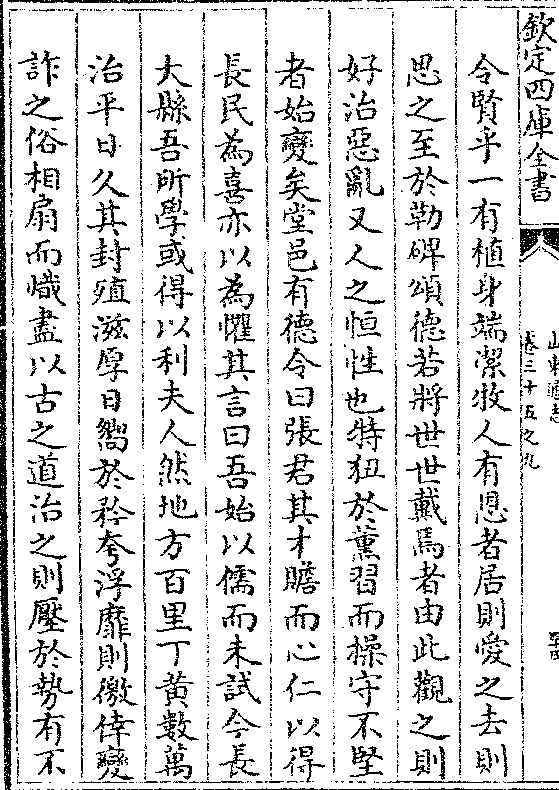 欽定四庫全書
山東通志
卷三十五之九
令賢乎一有植身端潔牧人有恩者居則愛之去則
思之至於勒碑頌德若將世世戴焉者由此觀之則
好治惡亂又人之恒性也特狃於薰習而操守不堅
者始變矣堂邑有德令曰張君其才贍而心仁以得
長民為喜亦以為懼其言曰吾始以儒而未試今長
大縣吾所學或得以利夫人然地方百里丁黄數萬
治平日久其封殖滋厚日嚮於矜夸浮靡則徼倖變
詐之俗相扇而熾盡以古之道治之則壓於勢有不